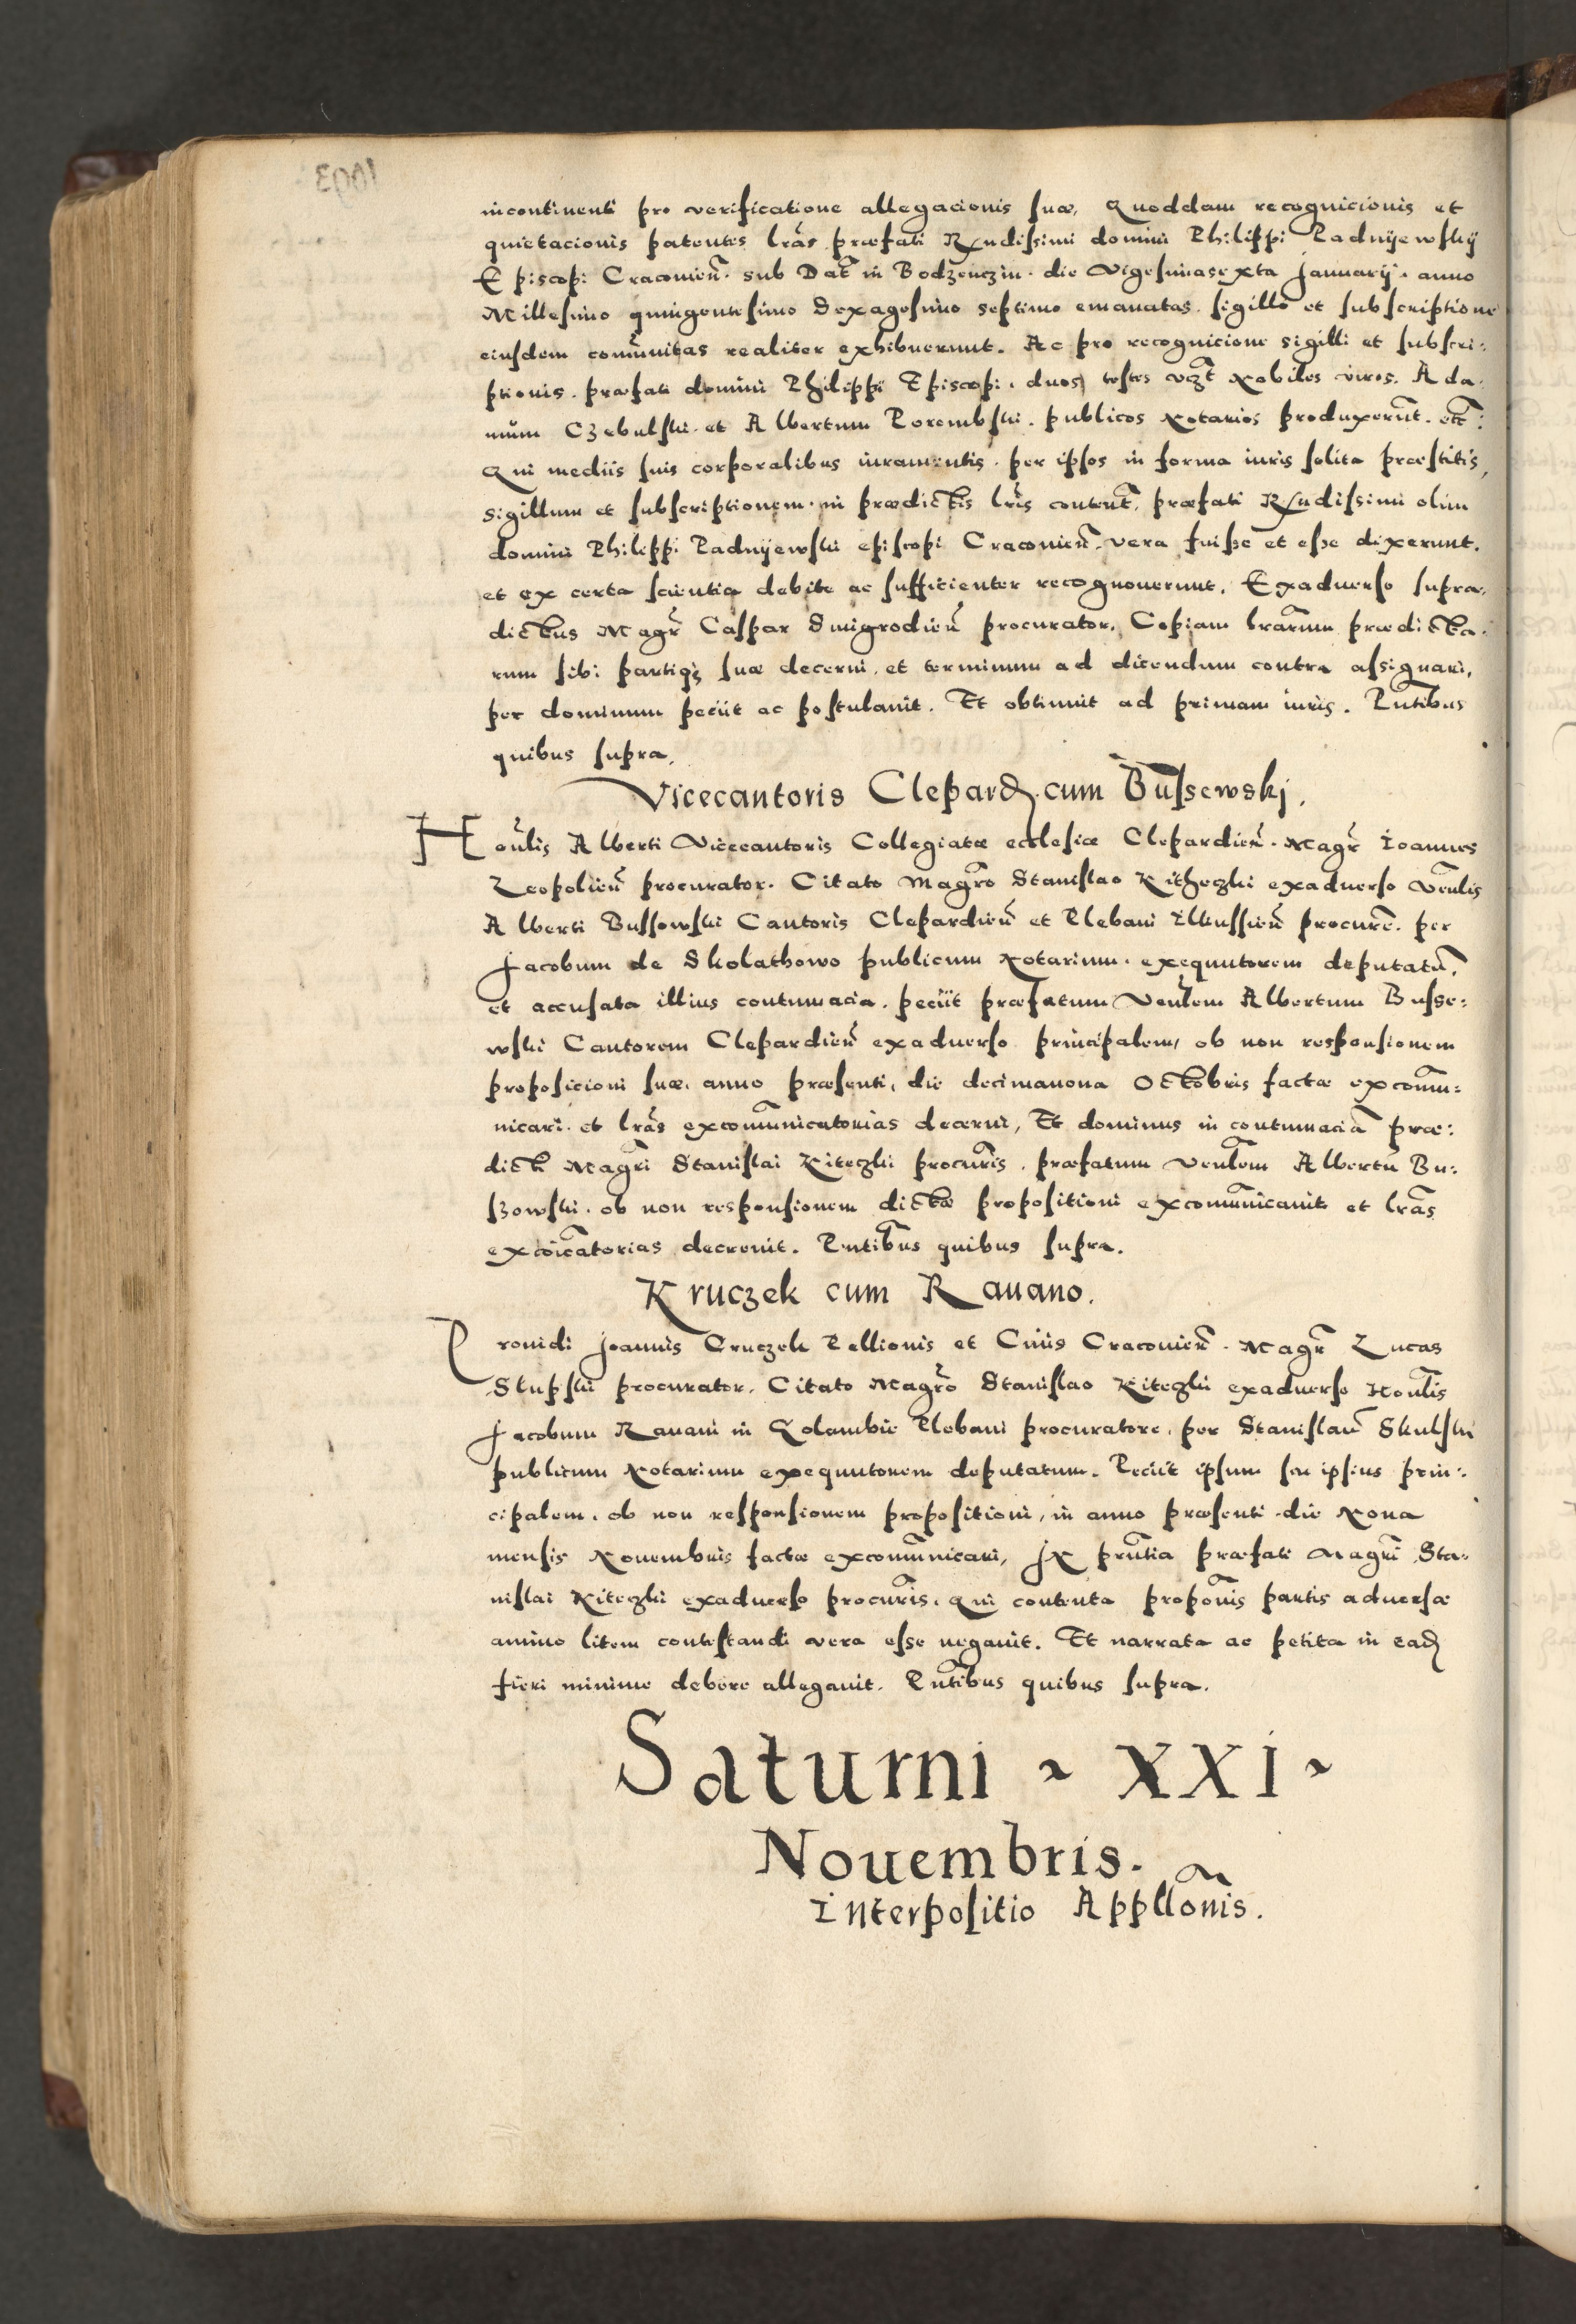 incontinenti pro verificatione allegacionis suæ, Quoddam recognicionis et
quietacionis patentes lrãs præfati Rndissimi domini Philippi Padnyewskij
Episcopi Cracovien̄. sub Dat̄ in Bodzenczin. die Vigesimasexta Januarij. anno
Millesimo quingentesimo Sexagesimo septimo emanatas. sigillo et subscriptione
eiusdem com̄unitas realiter exhibuerunt. Ac pro recognicione sigilli et subscri:
ptionis. præfati domini Philippi Episcopi. duos testes vczt̄ Nobiles viros. Ada:
mum Czebulski. et Albertum Porembski. publicos Notarios produxerūt. etc̄:
Qui mediis suis corporalibus iuramentis. per ipsos in forma iuris solita præstitis,
sigillum et subscriptionem. in prædictis lrīs content̄, præfati Rndissimi olim
domini Philippi Padnyewski episcopi Cracovien̄. vera fuisse et esse dixerunt.
et ex certa scientia debite ac sufficienter recognoverunt. Exadverso supra:
dictus Magr̄ Caspar Smigrodien̄ procurator. Copiam lrārum prædicta:
rum sibi partiq; suæ decerni. et terminum ad dicendum contra assignari,
per dominum peciit ac postulauit. Et obtinuit ad primam iuris. Pn̄tibus
quibus supra.
Vicecantoris Clepard. cum Bussewskj.
Honl̄is Alberti Vicecantoris Collegiatæ ecclesiæ Clepardien̄. Magr̄ Ioannes
Leopolien̄ procurator. Citato Magrō Stanislao Kitheczki exaduerso Venl̄is
Alberti Bussowski Cantoris Clepardien̄ et Plebani Ilkussien̄ procurē. per
Jacobum de Skolathowo publicum Notarium. exequutorem deputatū,
et accusata illius contumacia. peciit præfatum Venl̄em Albertum Busse:
wski Cantorem Clepardien̄ exaduerso principalem, ob non responsionem
proposicioni suæ. anno præsenti, die decimanona Octobris factæ excom̄u:
nicari. et lrās excom̄unicatorias decerni, Et dominus in contumaciā præ:
dicti Magrī Stanislai Kiteczki procurīs. præfatum Venl̄em Albertū Bu:
szowski. ob non responsionem dictæ propositioni excom̄unicauit et lrās
excoīcatorias decreuit. Pn̄tibus quibus supra.
Kruczek cum Rauano.
Prouidi Joannis Cruczek Pellionis et Ciuis Cracovien̄. Magr̄ Lucas
Slupski procurator. Citato Magrō Stanislao Kiteczki exaduerso Honl̄is
Jacobum Rauani in Golambie Plebani procuratore. per Stanislaū Skulski
publicum Notarium exequutorem deputatum. Peciit ipsum seu ipsius prin:
cipalem. ob non responsionem propositioni, in anno præsenti die Nona
mensis Nouembris factæ excom̄unicari, IN prn̄tia præfati Magrī Sta:
nislai Kiteczki exaduerso procurīs. Qui contenta propōnis partis aduersæ
animo litem contestandi vera esse negauit. Et narrata ac petita in ead
fieri minime debere allegauit. Pn̄tibus quibus supra.
Saturni ~ XXI ~
Nouembris.
Interpositio Appllōnis.